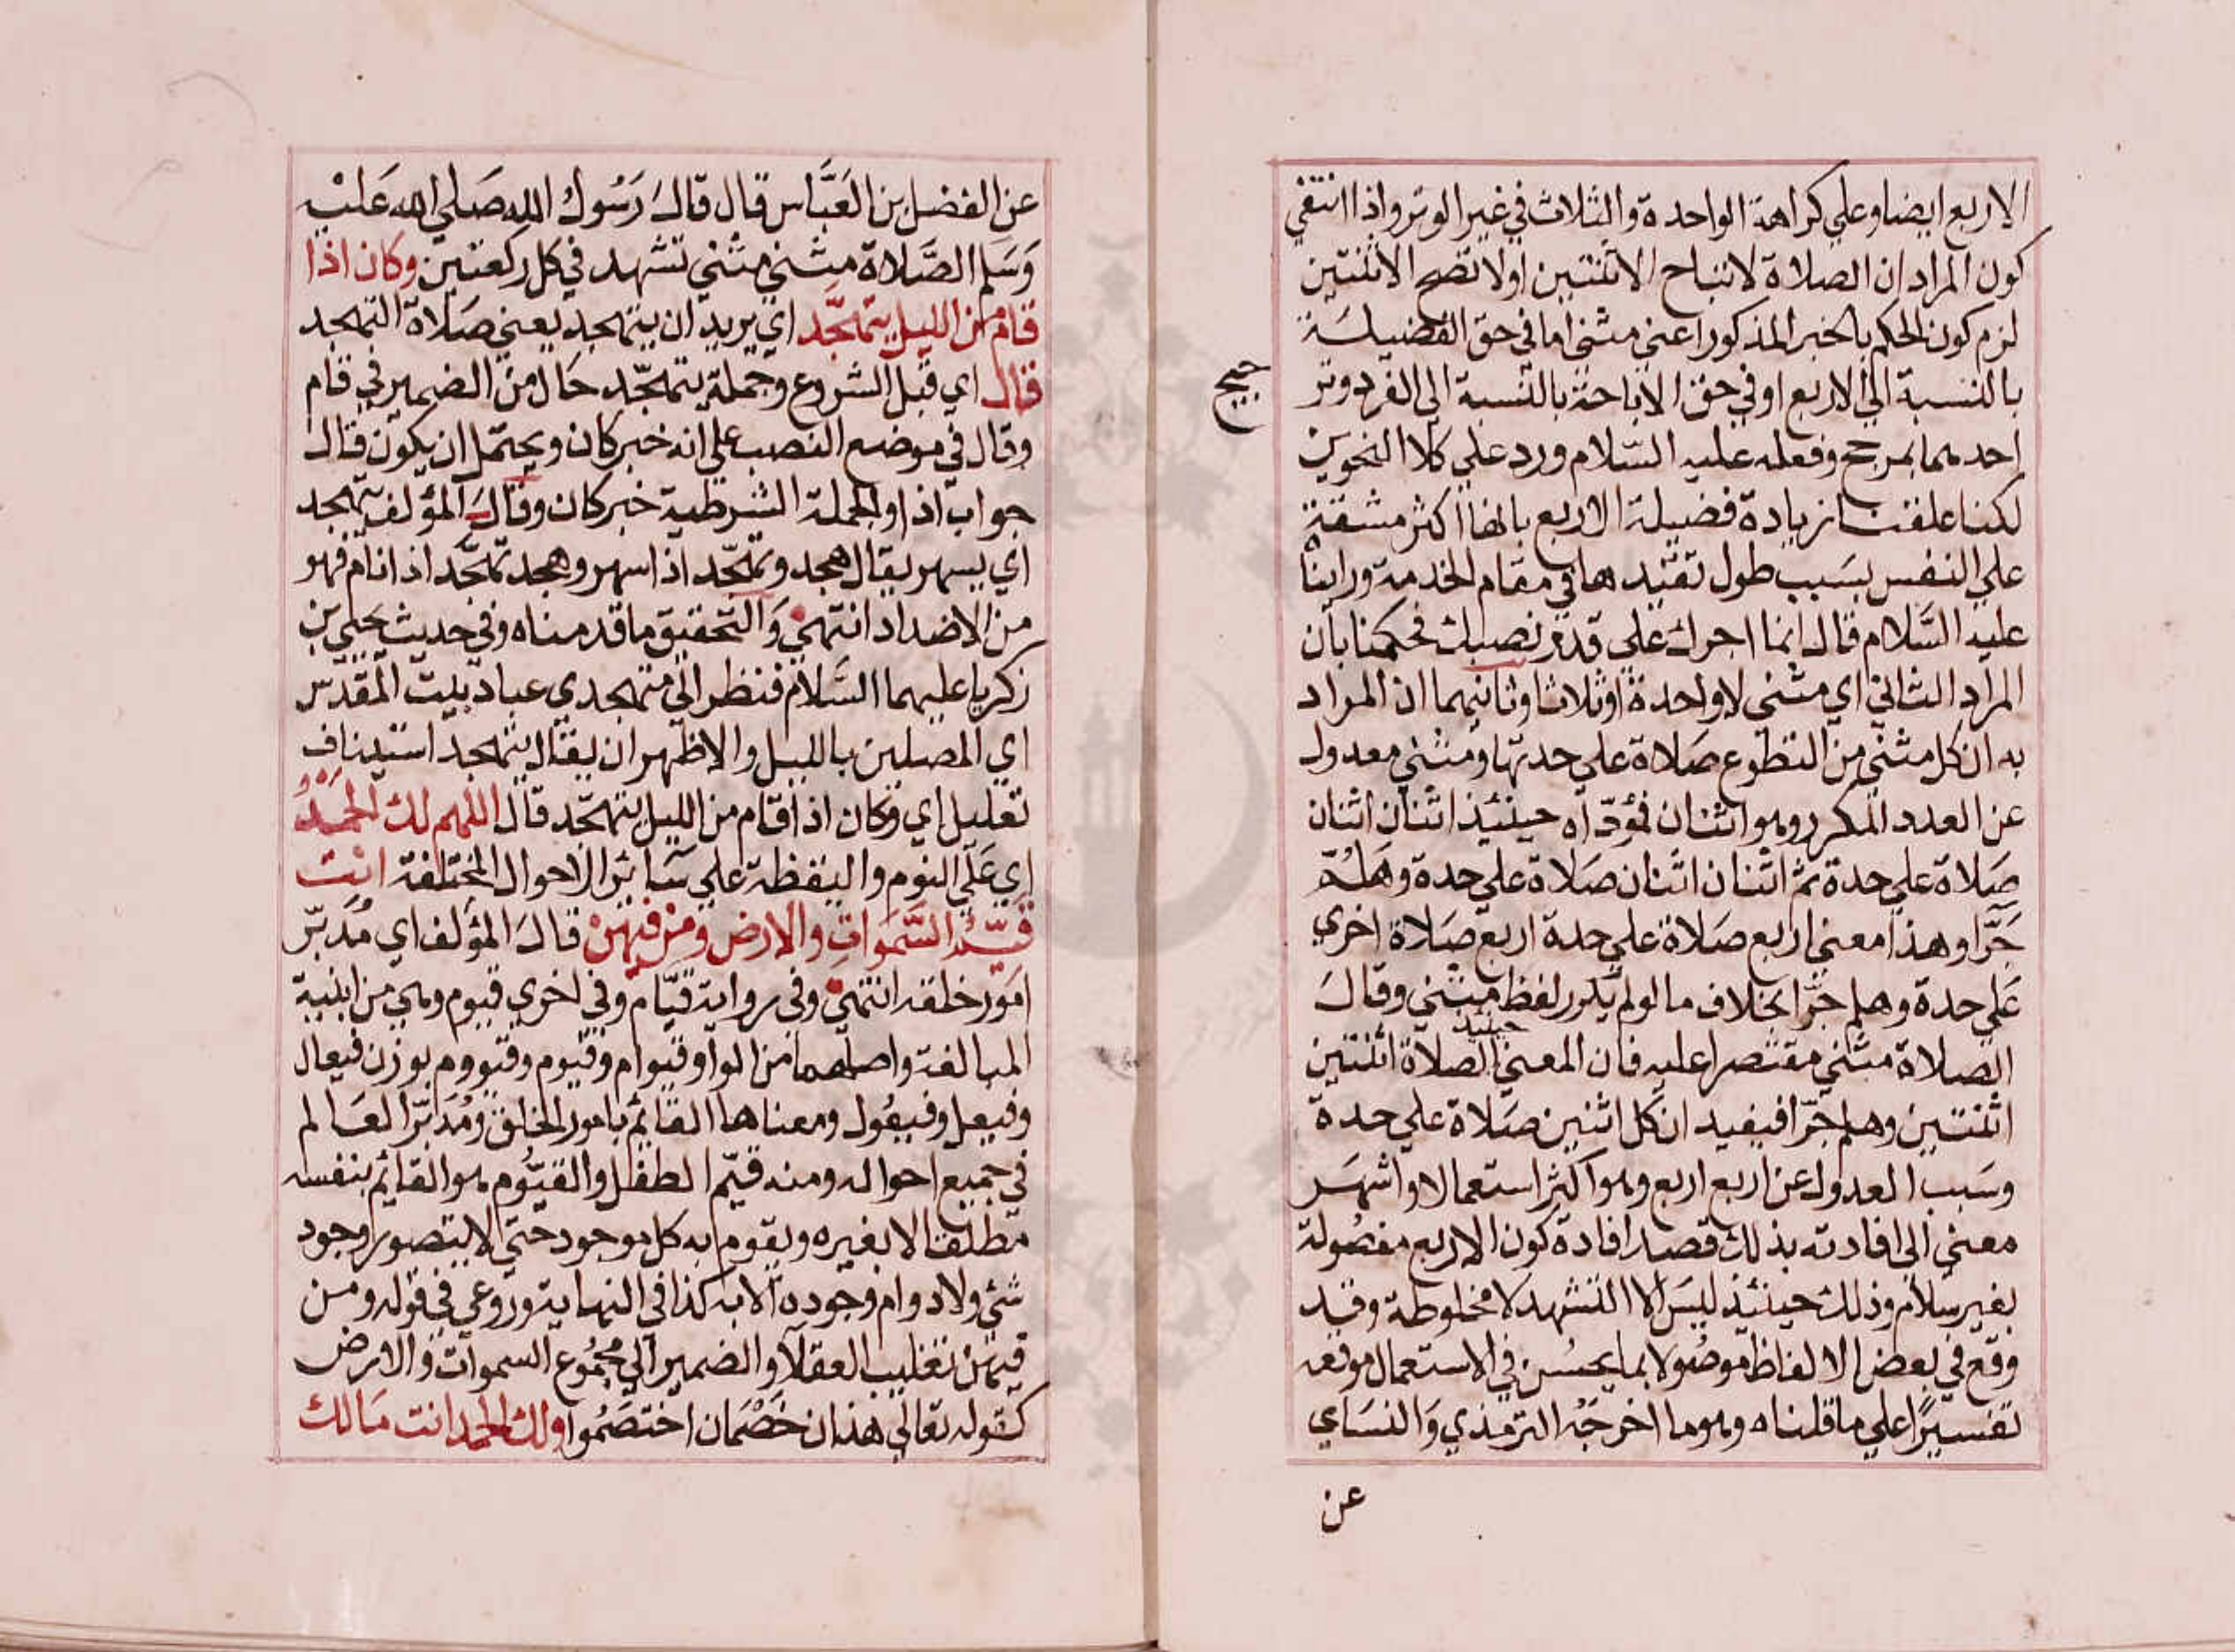 الاربع ايضا وعلي كراهة الواحدة والثلاث في غير الوتر واذا انتفي
كون المراد ان الصلاة لا تباح الا ثنتين او لا تصح الا ثنتين
لزم كون الحكم بالخبر المذكور اعني مثني اما في حق الفضيلة
بالنسبة الي الاربع او في حق الاباحة بالنسبة الي الفرد وتر
جيح
احدهما بمرجح وفعله عليه السلام ورد علي كلا النحوين
لكنا علقنا زيادة فضيلة الاربع بانها اكثر مشقة
علي النفس بسبب طول تقييدها في مقام الخدمة وراينا
عليه السلام قال انما اجرك علي قدر نصبك فحكمنا بان
المراد الثاني اي مثني لا واحدة او ثلاثا وثانيهما ان المراد
به ان كل مثني من التطوع صلاة علي حدتها ومثني معدول
عن العدد المكرر وهو اثنان فمؤداه حينئذ اثنان اثنان
صلاة علي حدة ثم اثنان اثنان صلاة علي حدة وهلم
جرا وهذا معني اربع صلاة علي حدة اربع صلاة اخري
علي حدة وهلم جرا بخلاف ما لو لم يكرر لفظ مثني وقال
الصلاة مثني مقتصرا عليه فان المعني حينئذ الصلاة اثنتين
اثنتين وهلم جرا فيفيد ان كل اثنين صلاة علي حدة
وسبب العدول عن اربع اربع وهو اكثر استعمالا واشهر
معني الي افادته بذلك قصد افادة كون الاربع مفصولة
بغير سلام وذلك حينئذ ليس الا التشهد لا مخلوطة وقد
وقع في بعض الالفاظ موصولا بما يحسن في الاستعمال موقعه
تفسيرا علي ما قلناه وهو ما اخرجه الترمذي والنساي
عن
عن الفضل بن العباس قال قال رسول الله صلي الله عليه
وسلم الصلاة مثني مثني تشهد في كل ركعتين وكان اذا
قام من الليل يتهجد اي يريد ان يتهجد يعني صلاة التهجد
قال اي قبل الشروع وجملة يتهجد حال من الضمير في قام
وقال في موضع النصب علي انه خبر كان ويحتمل ان يكون قال
جواب اذا والجملة الشرطية خبر كان وقال المؤلف يتهجد
اي يسهر يقال هجد وتهجد اذا سهر وهجد تهجد اذا نام فهو
من الاضداد انتهي والتحقيق ما قدمناه وفي حديث يحيي بن
زكريا عليهما السلام فنظر الي متهجدي عباد بيت المقدس
اي المصلين بالليل والاظهر ان يقال يتهجد استيناف
تعليل اي وكان اذا قام من الليل يتهجد قال اللهم لك الحمد
اي علي النوم واليقظة علي سائر الاحوال المختلفة انت
قيم السموات والارض ومن فيهن قال المؤلف اي مدبر
امور خلقه انتهي وفي رواية قيام وفي اخري قيوم وهي من ابنية
المبالغة واصلهما من الواو قيوام وقيوم وقيووم بوزن فيعال
وفيعل وفيعول ومعناها القائم بامور الخلق ومدبر العالم
في جميع احواله ومنه قيم الطفل والقيوم هو القائم بنفسه
مطلقا لا بغيره ويقوم به كل موجود حتي لا يتصور وجود
شيء ولا دوام وجوده الا به كذا في النهاية وروعي في قوله ومن
فيهن تغليب العقلاء والضمير الي مجموع السموات والارض
كقوله تعالي هذان خصمان اختصموا ولك الحمد انت مالك